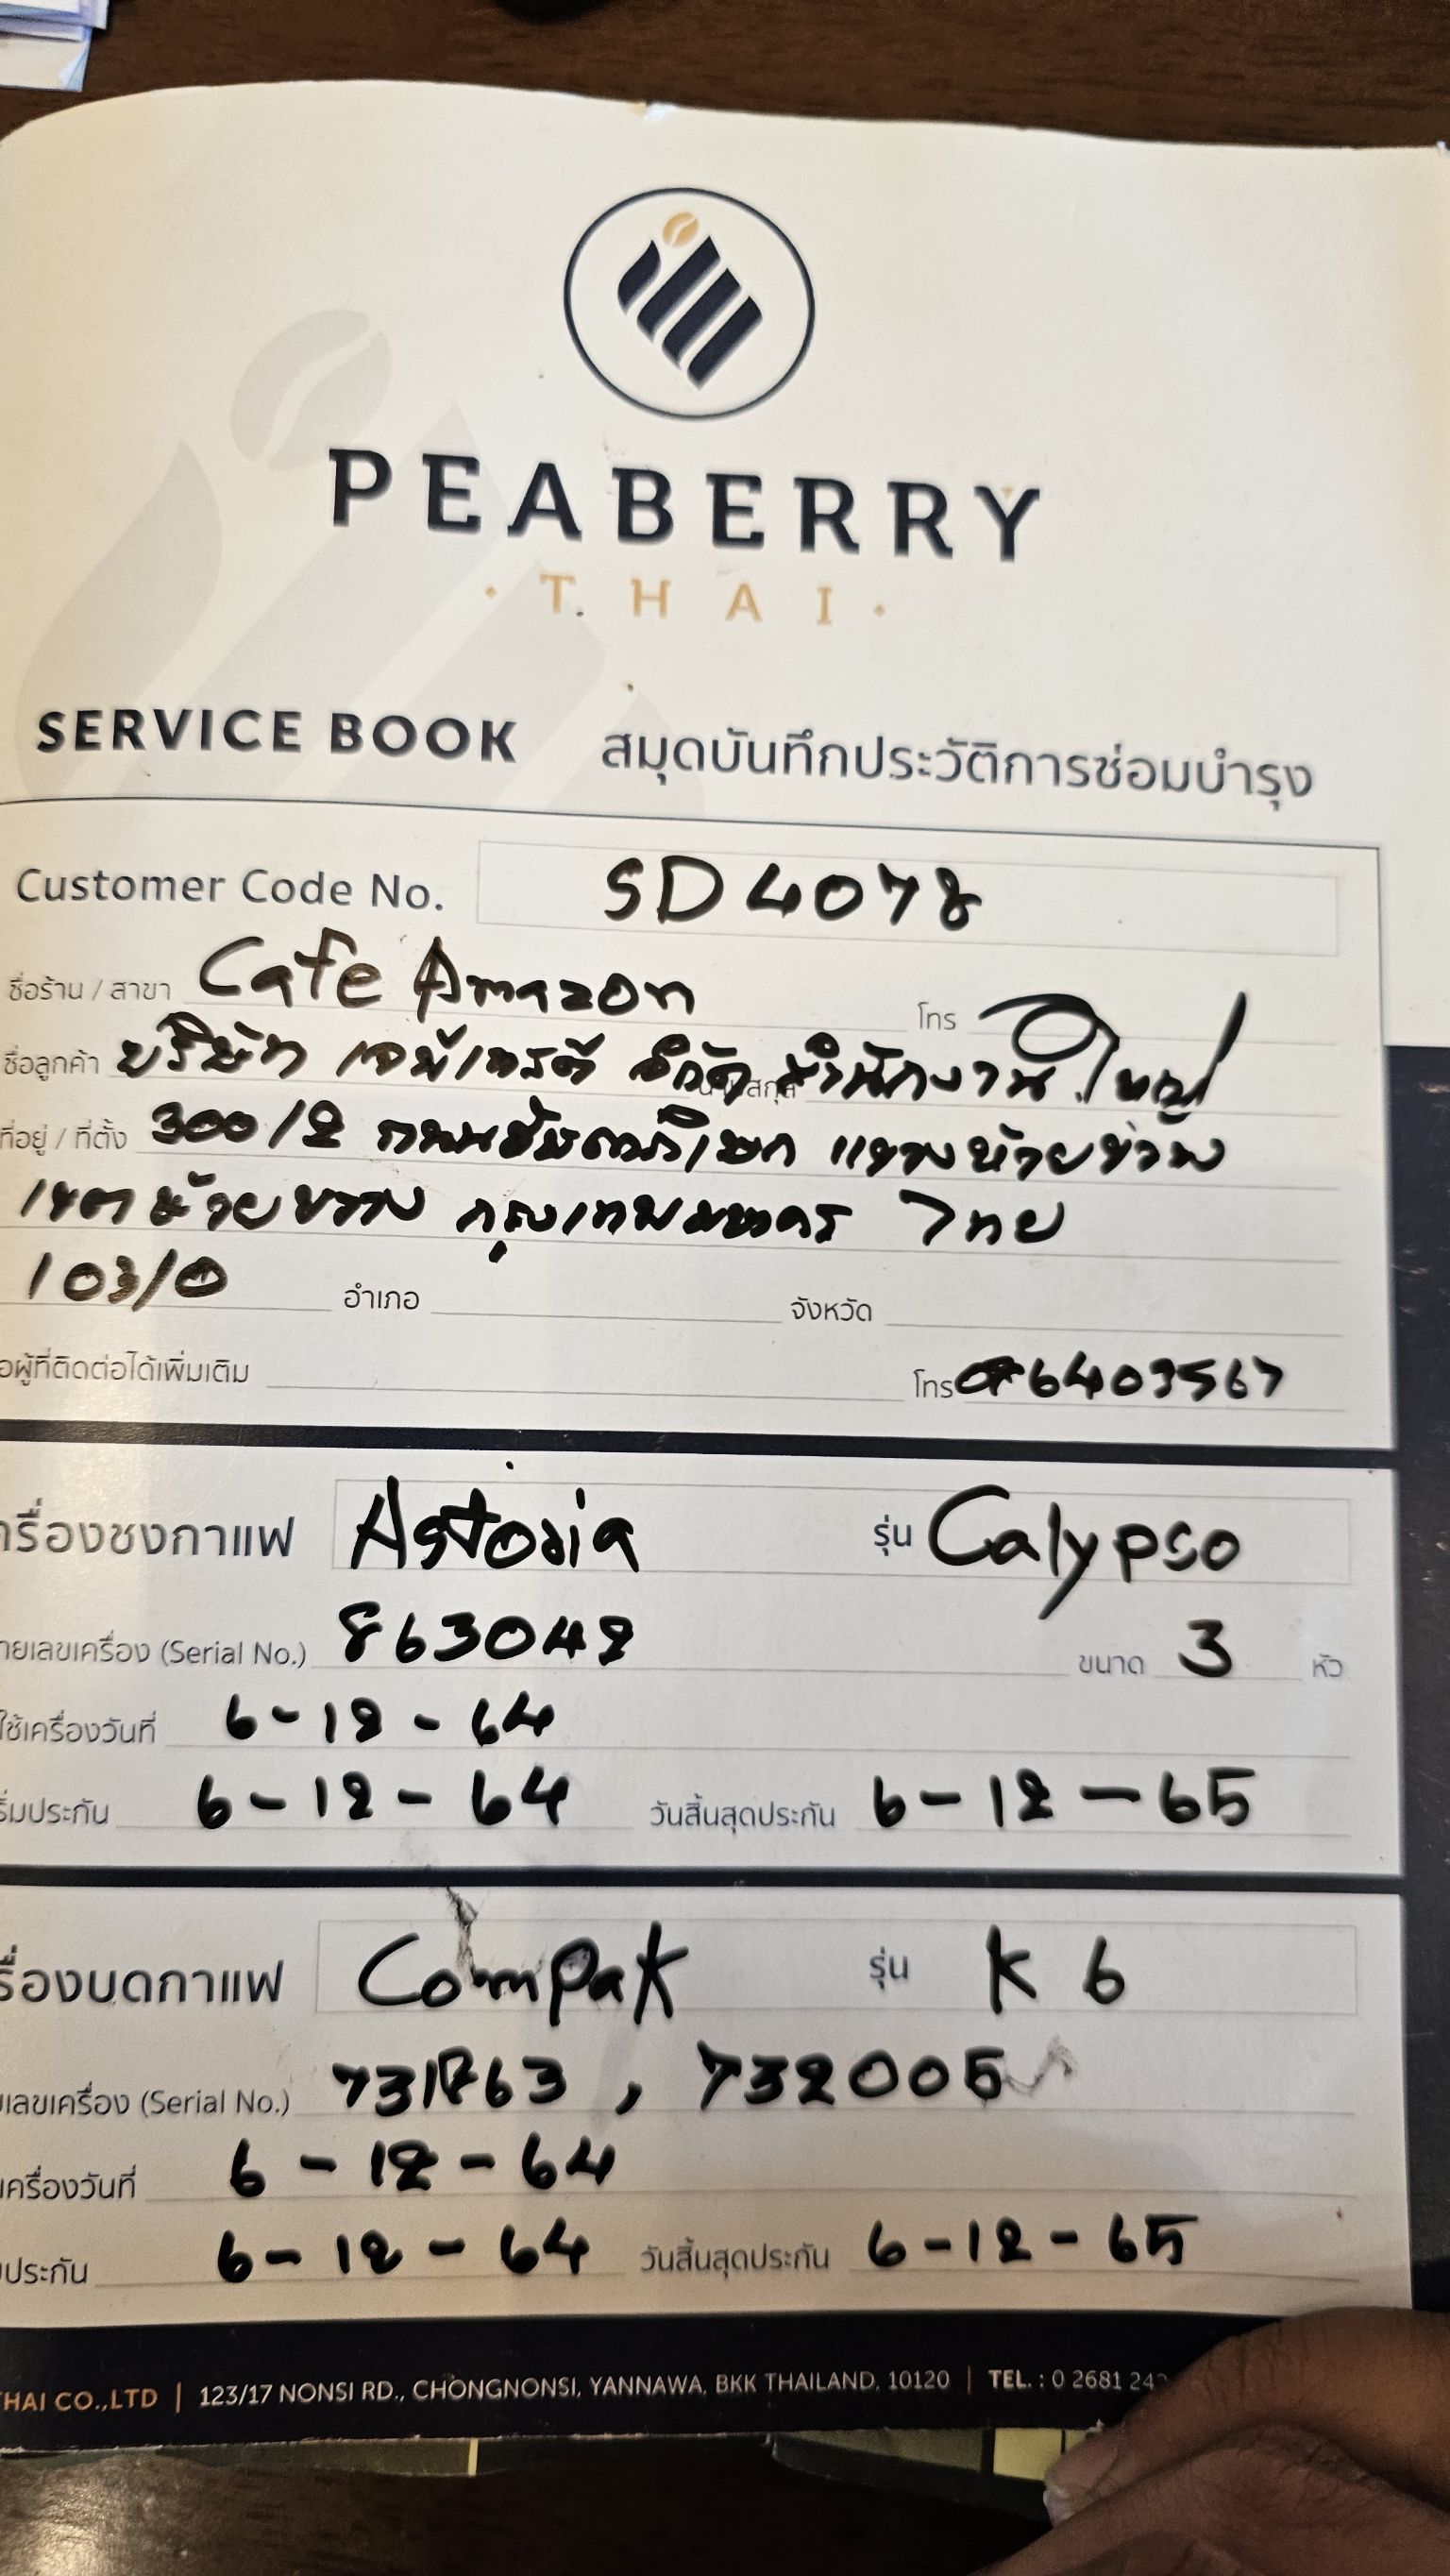 PEABERRY
THAI
SERVICE BOOK สมุดบันทึกประวัติการซ่อมบำรุง
Customer Code No. SD4078
ชื่อร้าน / สาขา Cafe Amazon โทร
ชื่อลูกค้า บริษัท จำกัด สำนักงานใหญ่
ที่อยู่ / ที่ตั้ง 300/2 แขวงห้วยขวาง
เขตห้วยขวาง กรุงเทพมหานคร ไทย
10310 อำเภอ จังหวัด
อผู้ที่ติดต่อได้เพิ่มเติม โทร
ครื่องชงกาแฟ Astoria รุ่น Calypso
ายเลขเครื่อง (Serial No.) 863042 ขนาด 3 หัว
ใช้เครื่องวันที่ 6-12-64
ริ่มประกัน 6-12-64 วันสิ้นสุดประกัน 6-12-65
รื่องบดกาแฟ Compak รุ่น K6
ยเลขเครื่อง (Serial No.) , 732005
เครื่องวันที่ 6-12-64
มประกัน 6-12-64 วันสิ้นสุดประกัน 6-12-65
HAI CO.,LTD | 123/17 NONSI RD., CHONGNONSI, YANNAWA, BKK THAILAND, 10120 | TEL. : 0 2681